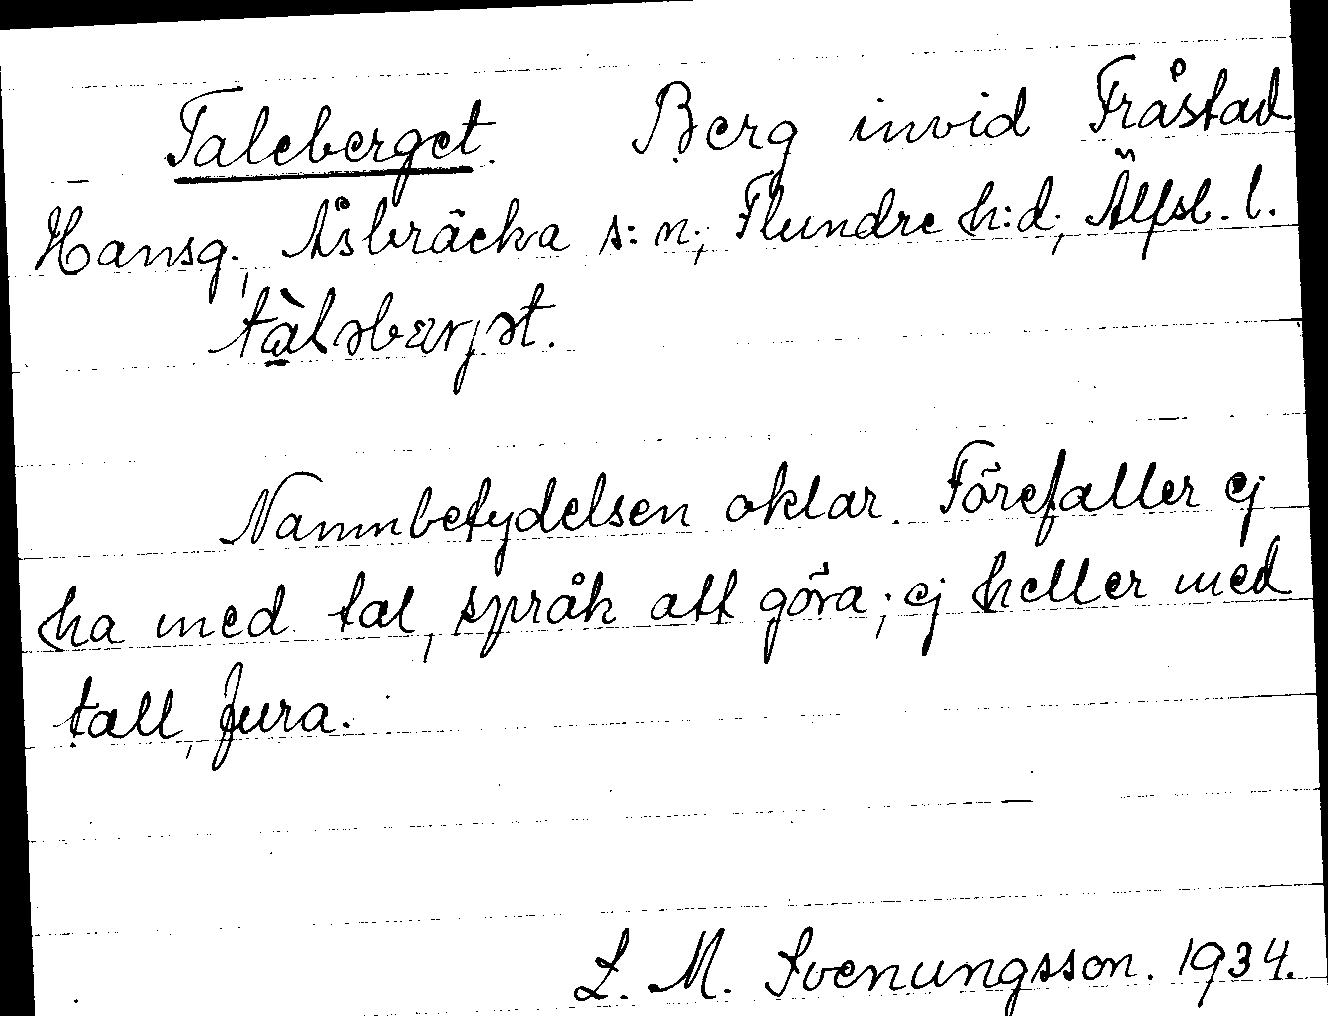 Taleberget. Berg invid Fråstad
Hansg., Åsbräcka s:n., Flundre h:d., Älfsb. l.
tàləbærjət.
Namnbetydelsen oklar. Förefaller ej
ha med tal, språk att göra; ej heller med
tall, fura.
L. M. Svenungsson. 1934.